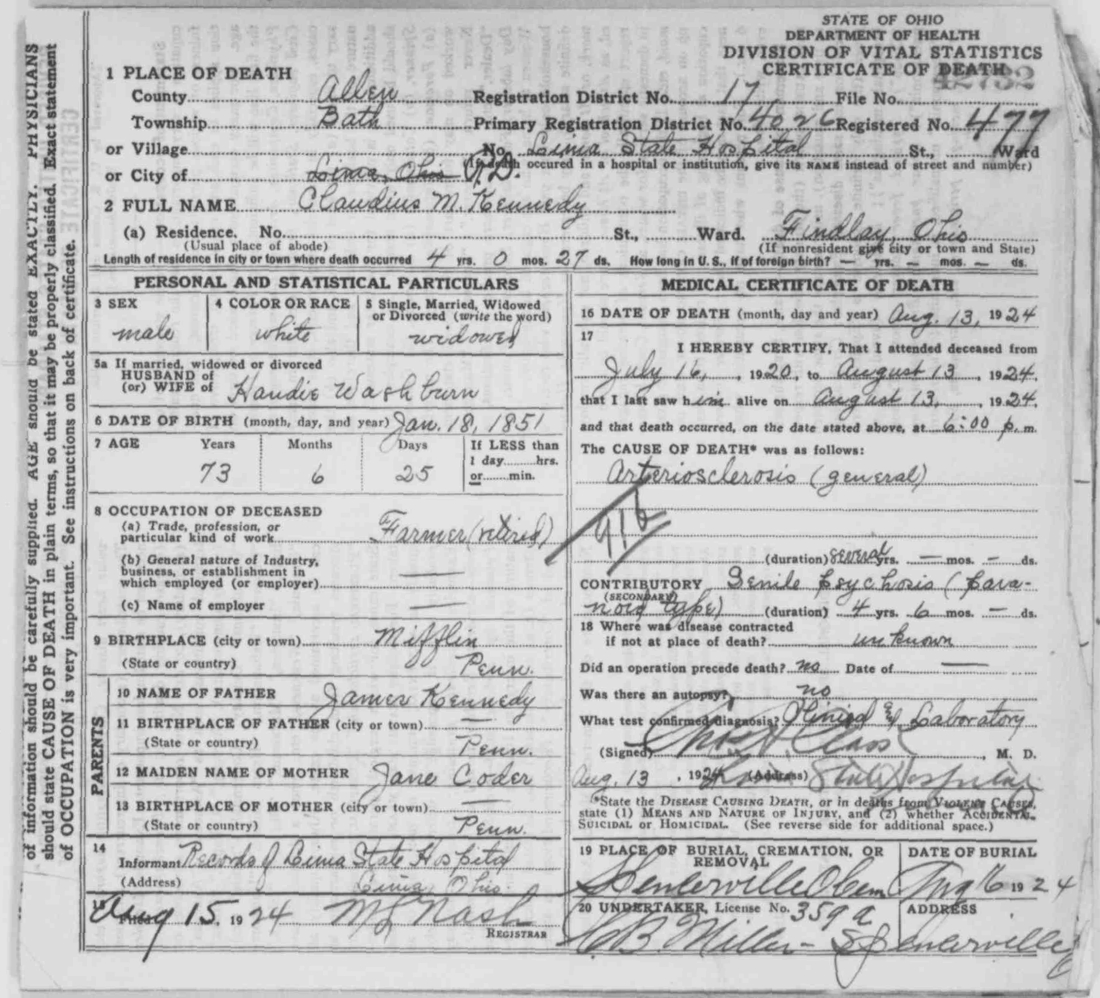 STATE OF OHIO
DEPARTMENT OF HEALTH
DIVISION OF VITAL STATISTICS
CERTIFICATE OF DEATH
1 PLACE OF DEATH
County Allen Registration District No. 17 File No.
Township Bath Primary Registration District No. 4026 Registered No. 477
or Village No. Lima State Hospital St., Ward
(If death occured in a hospital or institution, give its NAME instead of street and number)
or City of Lima, Ohio
2 FULL NAME Claudius M. Kennedy
(a) Residence. No. St., Ward. Findlay, Ohio
(Usual place of abode) (If nonresident give city or town and State)
Length of residence in city or town where death occurred 4 yrs. 0 mos. 27 ds. How long in U. S., if of foreign birth? — yrs. — mos. — ds.
PERSONAL AND STATISTICAL PARTICULARS
3 SEX
male
4 COLOR OR RACE
white
5 Single, Married, Widowed
or Divorced (write the word)
widowed
5a If married, widowed or divorced
HUSBAND of
(or) WIFE of Handie Washburn
6 DATE OF BIRTH (month, day, and year) Jan. 18, 1851
7 AGE Years Months Days If LESS than
1 day hrs.
73 6 25 or min.
8 OCCUPATION OF DECEASED
(a) Trade, profession, or
particular kind of work Farmer (retired)
(b) General nature of Industry,
business, or establishment in
which employed (or employer) —
(c) Name of employer —
9 BIRTHPLACE (city or town) Mifflin
(State or country) Penn.
PARENTS
10 NAME OF FATHER James Kennedy
11 BIRTHPLACE OF FATHER (city or town) —
(State or country) Penn.
12 MAIDEN NAME OF MOTHER Jane Coder
13 BIRTHPLACE OF MOTHER (city or town) —
(State or country) Penn.
14
Informant Records of Lima State Hospital
(Address) Lima, Ohio.
15
Filed Aug 15, 1924 M L Nash
REGISTRAR
MEDICAL CERTIFICATE OF DEATH
16 DATE OF DEATH (month, day and year) Aug. 13, 1924
17
I HEREBY CERTIFY, That I attended deceased from
July 16, 1920, to August 13, 1924.
that I last saw him alive on August 13, 1924.
and that death occurred, on the date stated above, at 6:00 p. m.
The CAUSE OF DEATH* was as follows:
Arteriosclerosis (general)
91b
(duration) several yrs. — mos. — ds.
CONTRIBUTORY Senile Psychosis (Para-
(SECONDARY)
noid type) (duration) 4 yrs. 6 mos. — ds.
18 Where was disease contracted
if not at place of death? unknown
Did an operation precede death? no Date of —
Was there an autopsy? no
What test confirmed diagnosis? Clinical & Laboratory
(Signed) M. D.
Aug. 13, 1924 (Address) Lima State Hospital
*State the DISEASE CAUSING DEATH, or in deaths from VIOLENT CAUSES,
state (1) MEANS AND NATURE OF INJURY, and (2) whether ACCIDENTAL,
SUICIDAL or HOMICIDAL. (See reverse side for additional space.)
19 PLACE OF BURIAL, CREMATION, OR
REMOVAL
Spencerville O Cem
DATE OF BURIAL
Aug 16 1924
20 UNDERTAKER, License No. 359a
C B Miller-
ADDRESS
Spencerville O
of information should be carefully supplied. AGE should be stated EXACTLY. PHYSICIANS
should state CAUSE OF DEATH in plain terms, so that it may be properly classified. Exact statement
of OCCUPATION is very important. See instructions on back of certificate.